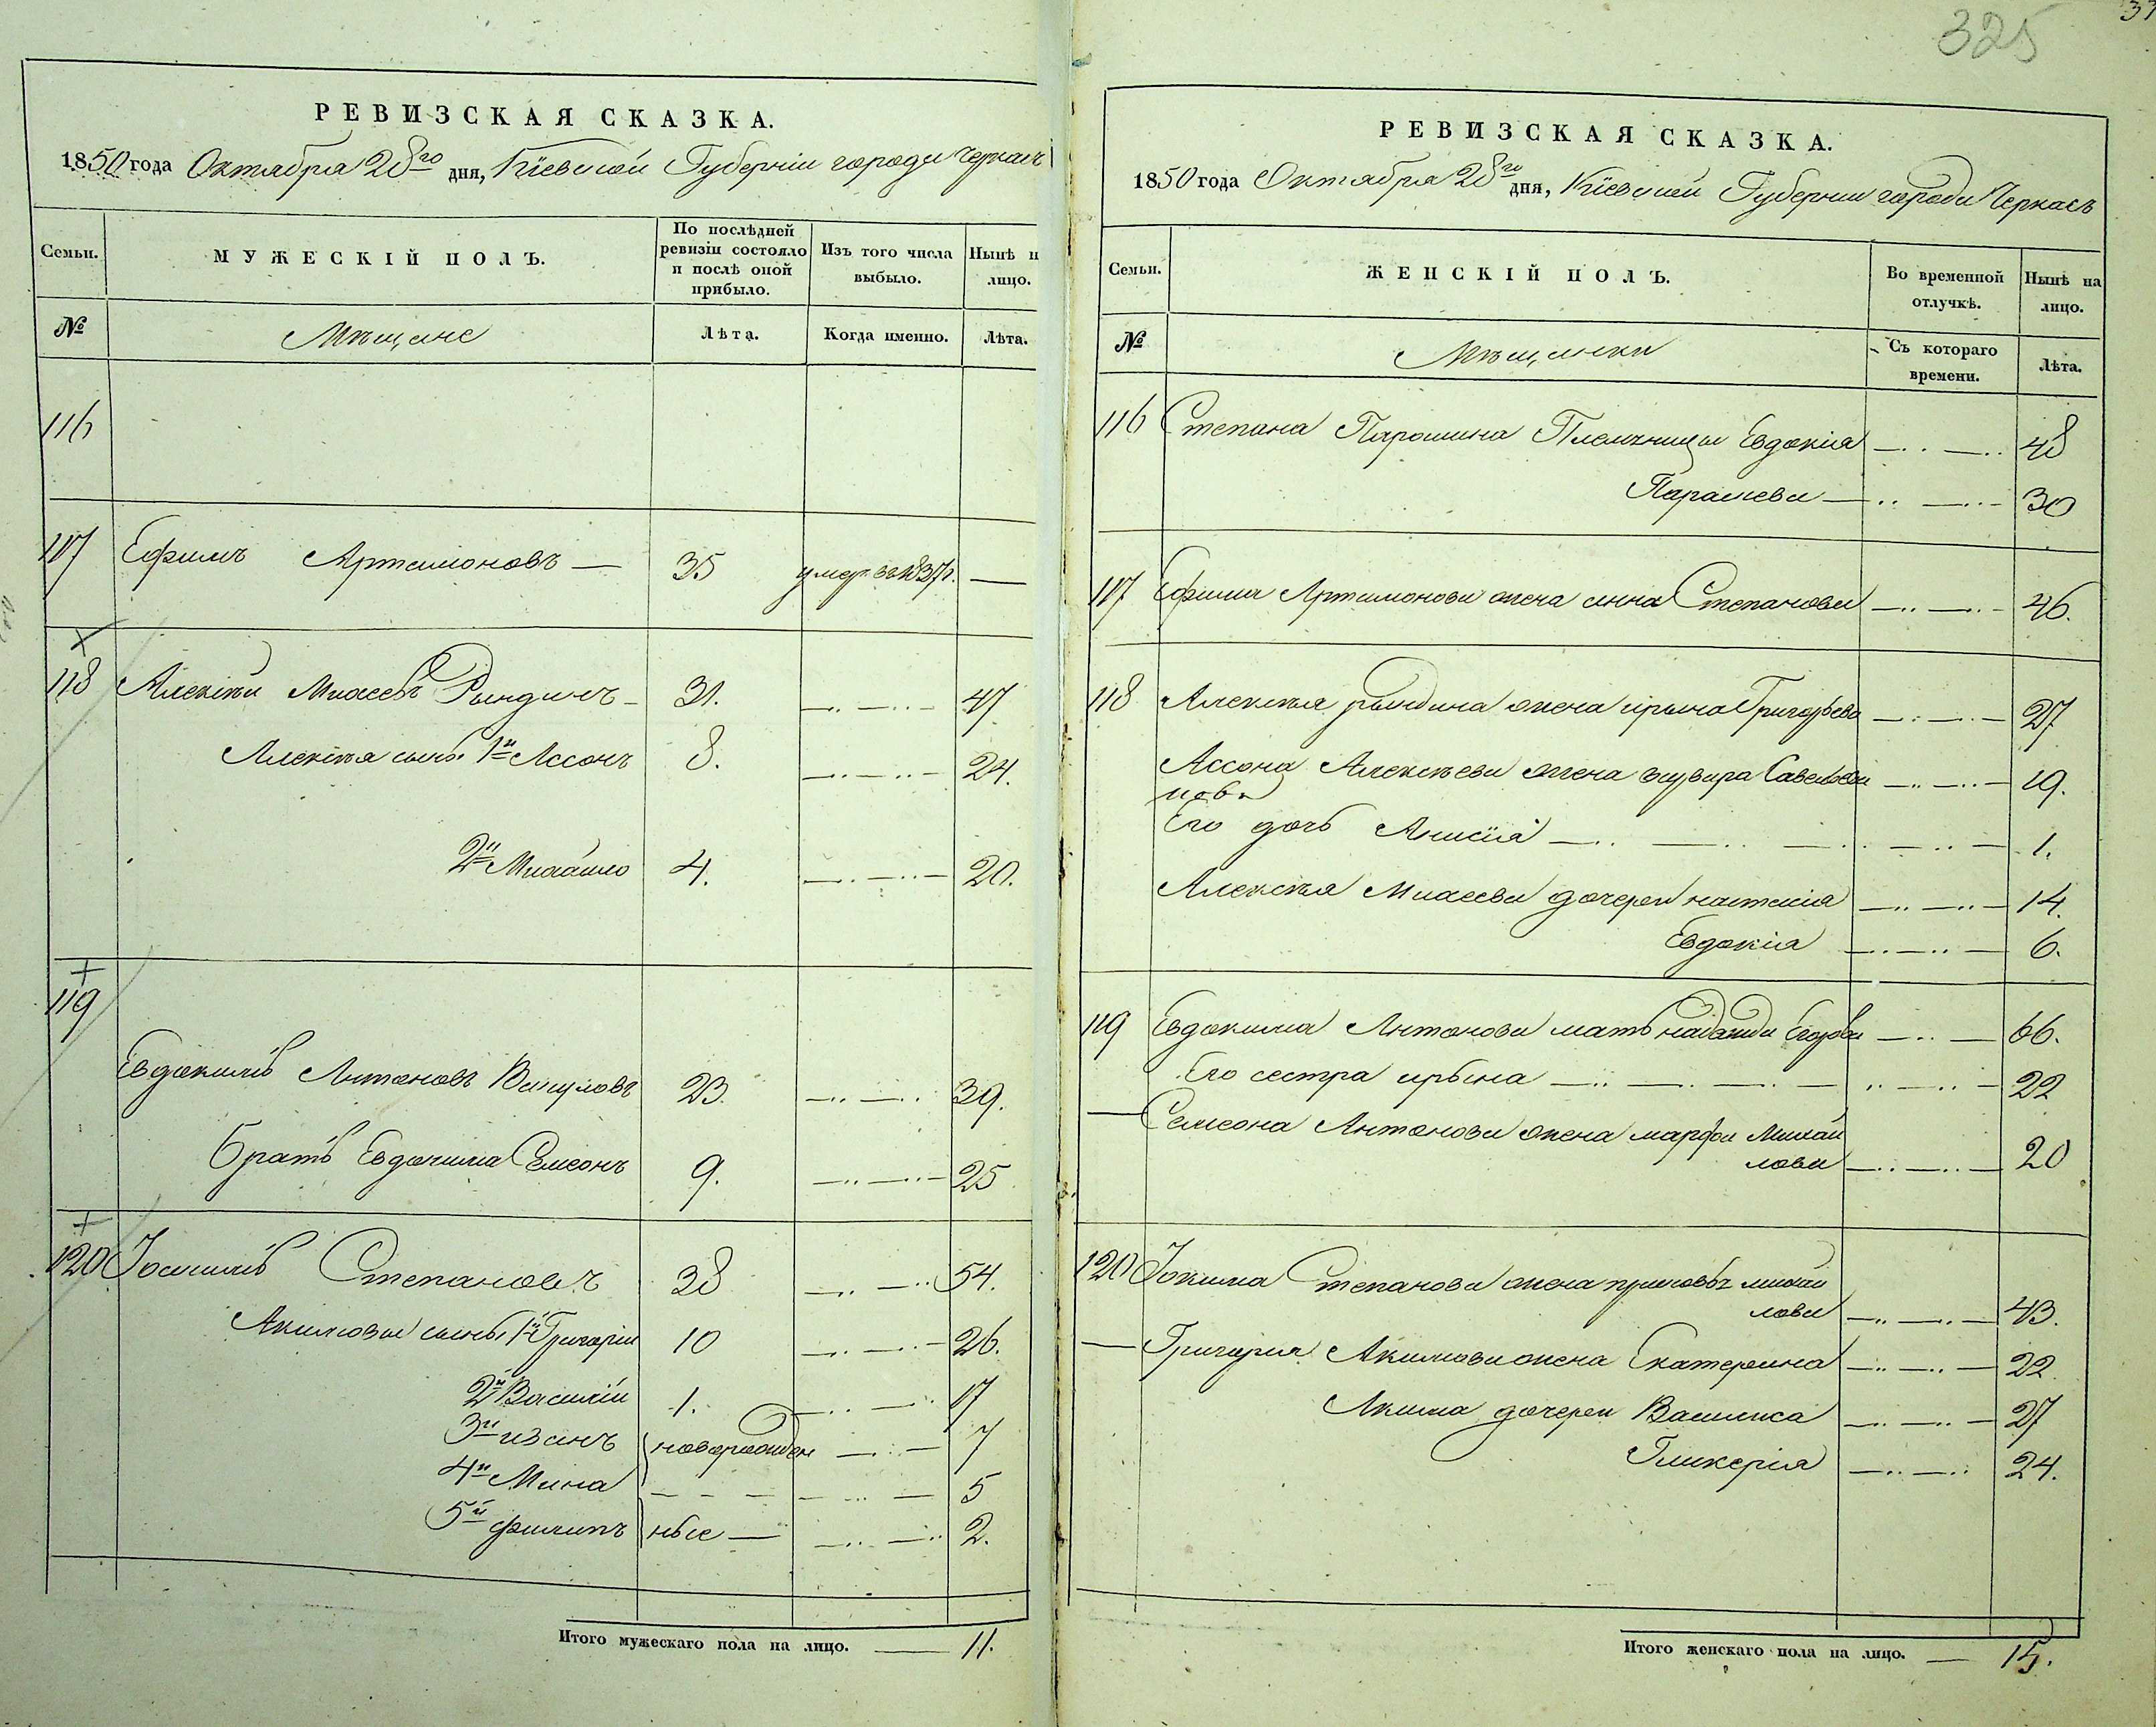 325
РЕВИЗСКАЯ СКАЗКА.
1850 года Октября 28го дня, Кіевской Губерніи города Черкасъ
Семьи.
МУЖЕСКІЙ ПОЛЪ.
По послѣдней ревизіи состояло и послѣ оной прибыло.
Изъ того числа выбыло.
Нынѣ н лицо.
№
Мѣщане
Лѣта.
Когда именно.
Лѣта.
116
117 Ефимъ Артамоновъ — 35 умеръ въ 1837г. —
118 Алексѣй Рындинъ 31. 47
Алексѣя сыны 1й Ассонъ 8. 24.
2й 4. 20.
119
Евдокимъ Антоновъ 23. 39.
Братъ Евдокима Семеонъ 9. 25
120 Степановъ 38 54.
Акимовы сыны 1й Григорій 10 26.
2й Василій 1. 17
3й Иванъ новорожден 7
4й Мина 5
5й Филипъ ные — 2.
Итого мужескаго пола на лицо. — 11.
РЕВИЗСКАЯ СКАЗКА.
1850 года Октября 28го дня, Кіевской Губерніи города Черкасъ
Семьи.
ЖЕНСКІЙ ПОЛЪ.
Во временной отлучкѣ.
Нынѣ на лицо.
№
Мѣщанки
Съ котораго времени.
Лѣта.
116 Степана Евдокія 48
30
117 Ефима Артамонова жена анна Степанова 46.
118 Алексѣя рындина жена ирына Григорьева 27
Ассона Алексѣева жена 19.
Его дочь Анисія 1.
Алексѣя дочери настасія 14.
Евдокія 6.
119 Евдокима Антонова мать Егорова 66.
Его сестра ирына 22
Семеона Антонова жена марфа Михай
лова 20
120 Іокима Степанова жена михай
лова 43.
Григорія Акимова жена Екатерина 22.
Акима дочери Василиса 27
Гликерія 24.
Итого женскаго пола на лицо. — 15.